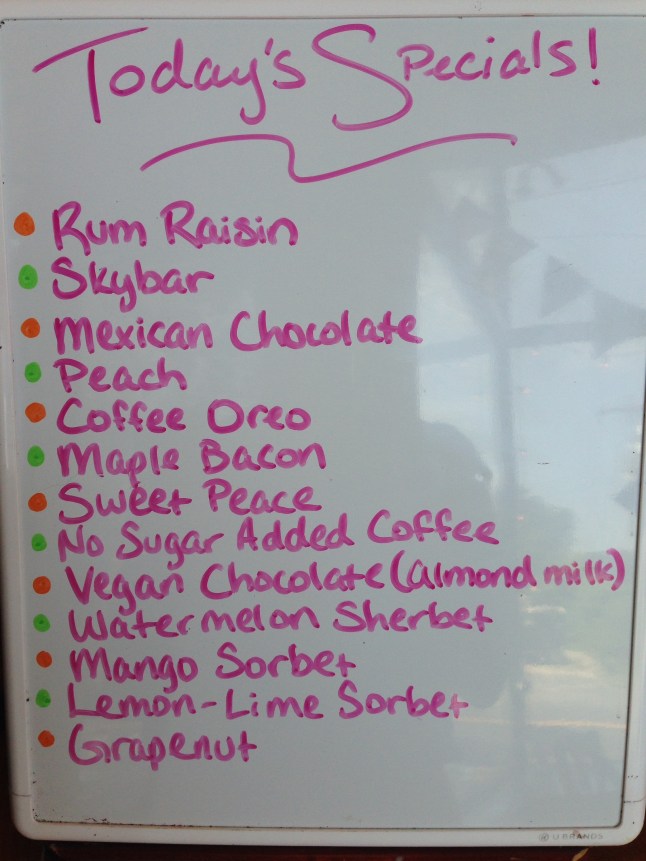 Today's Specials!
Rum Raisin
Skybar
Mexican Chocolate
Peach
Coffee Oreo
Maple Bacon
Sweet Peace
No Sugar Added Coffee
Vegan Chocolate (almond milk)
Watermelon Sherbet
Mango Sorbet
Lemon-Lime Sorbet
Grapenut
U BRANDS